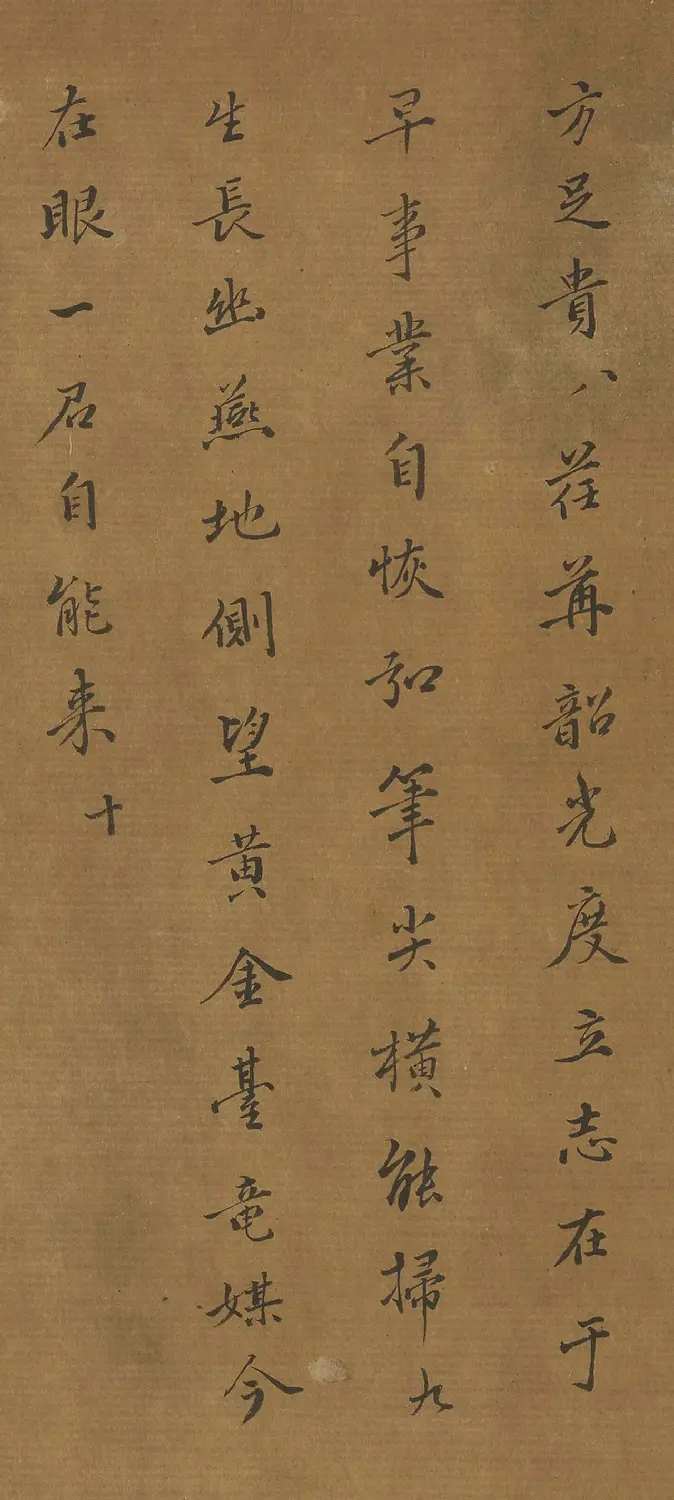 方足貴八荏苒韶光度立志在于
早事業自恢弘筆尖橫能掃九
生長幽燕地側望黃金臺竜媒今
在眼一君自能来十